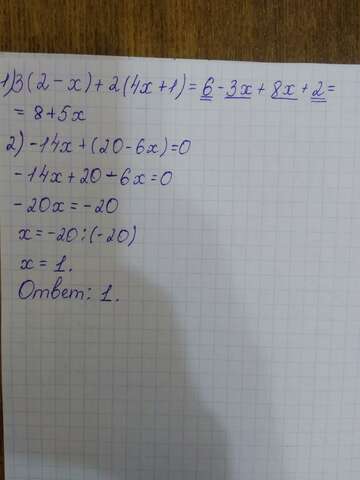 1)3(2-x)+2(4x+1)=6-3x+8x+2=
=8+5x
2)-14x+(20-6x)=0
-14x+20-6x=0
-20x=-20
x=-20:(-20)
x=1.
Ответ: 1.